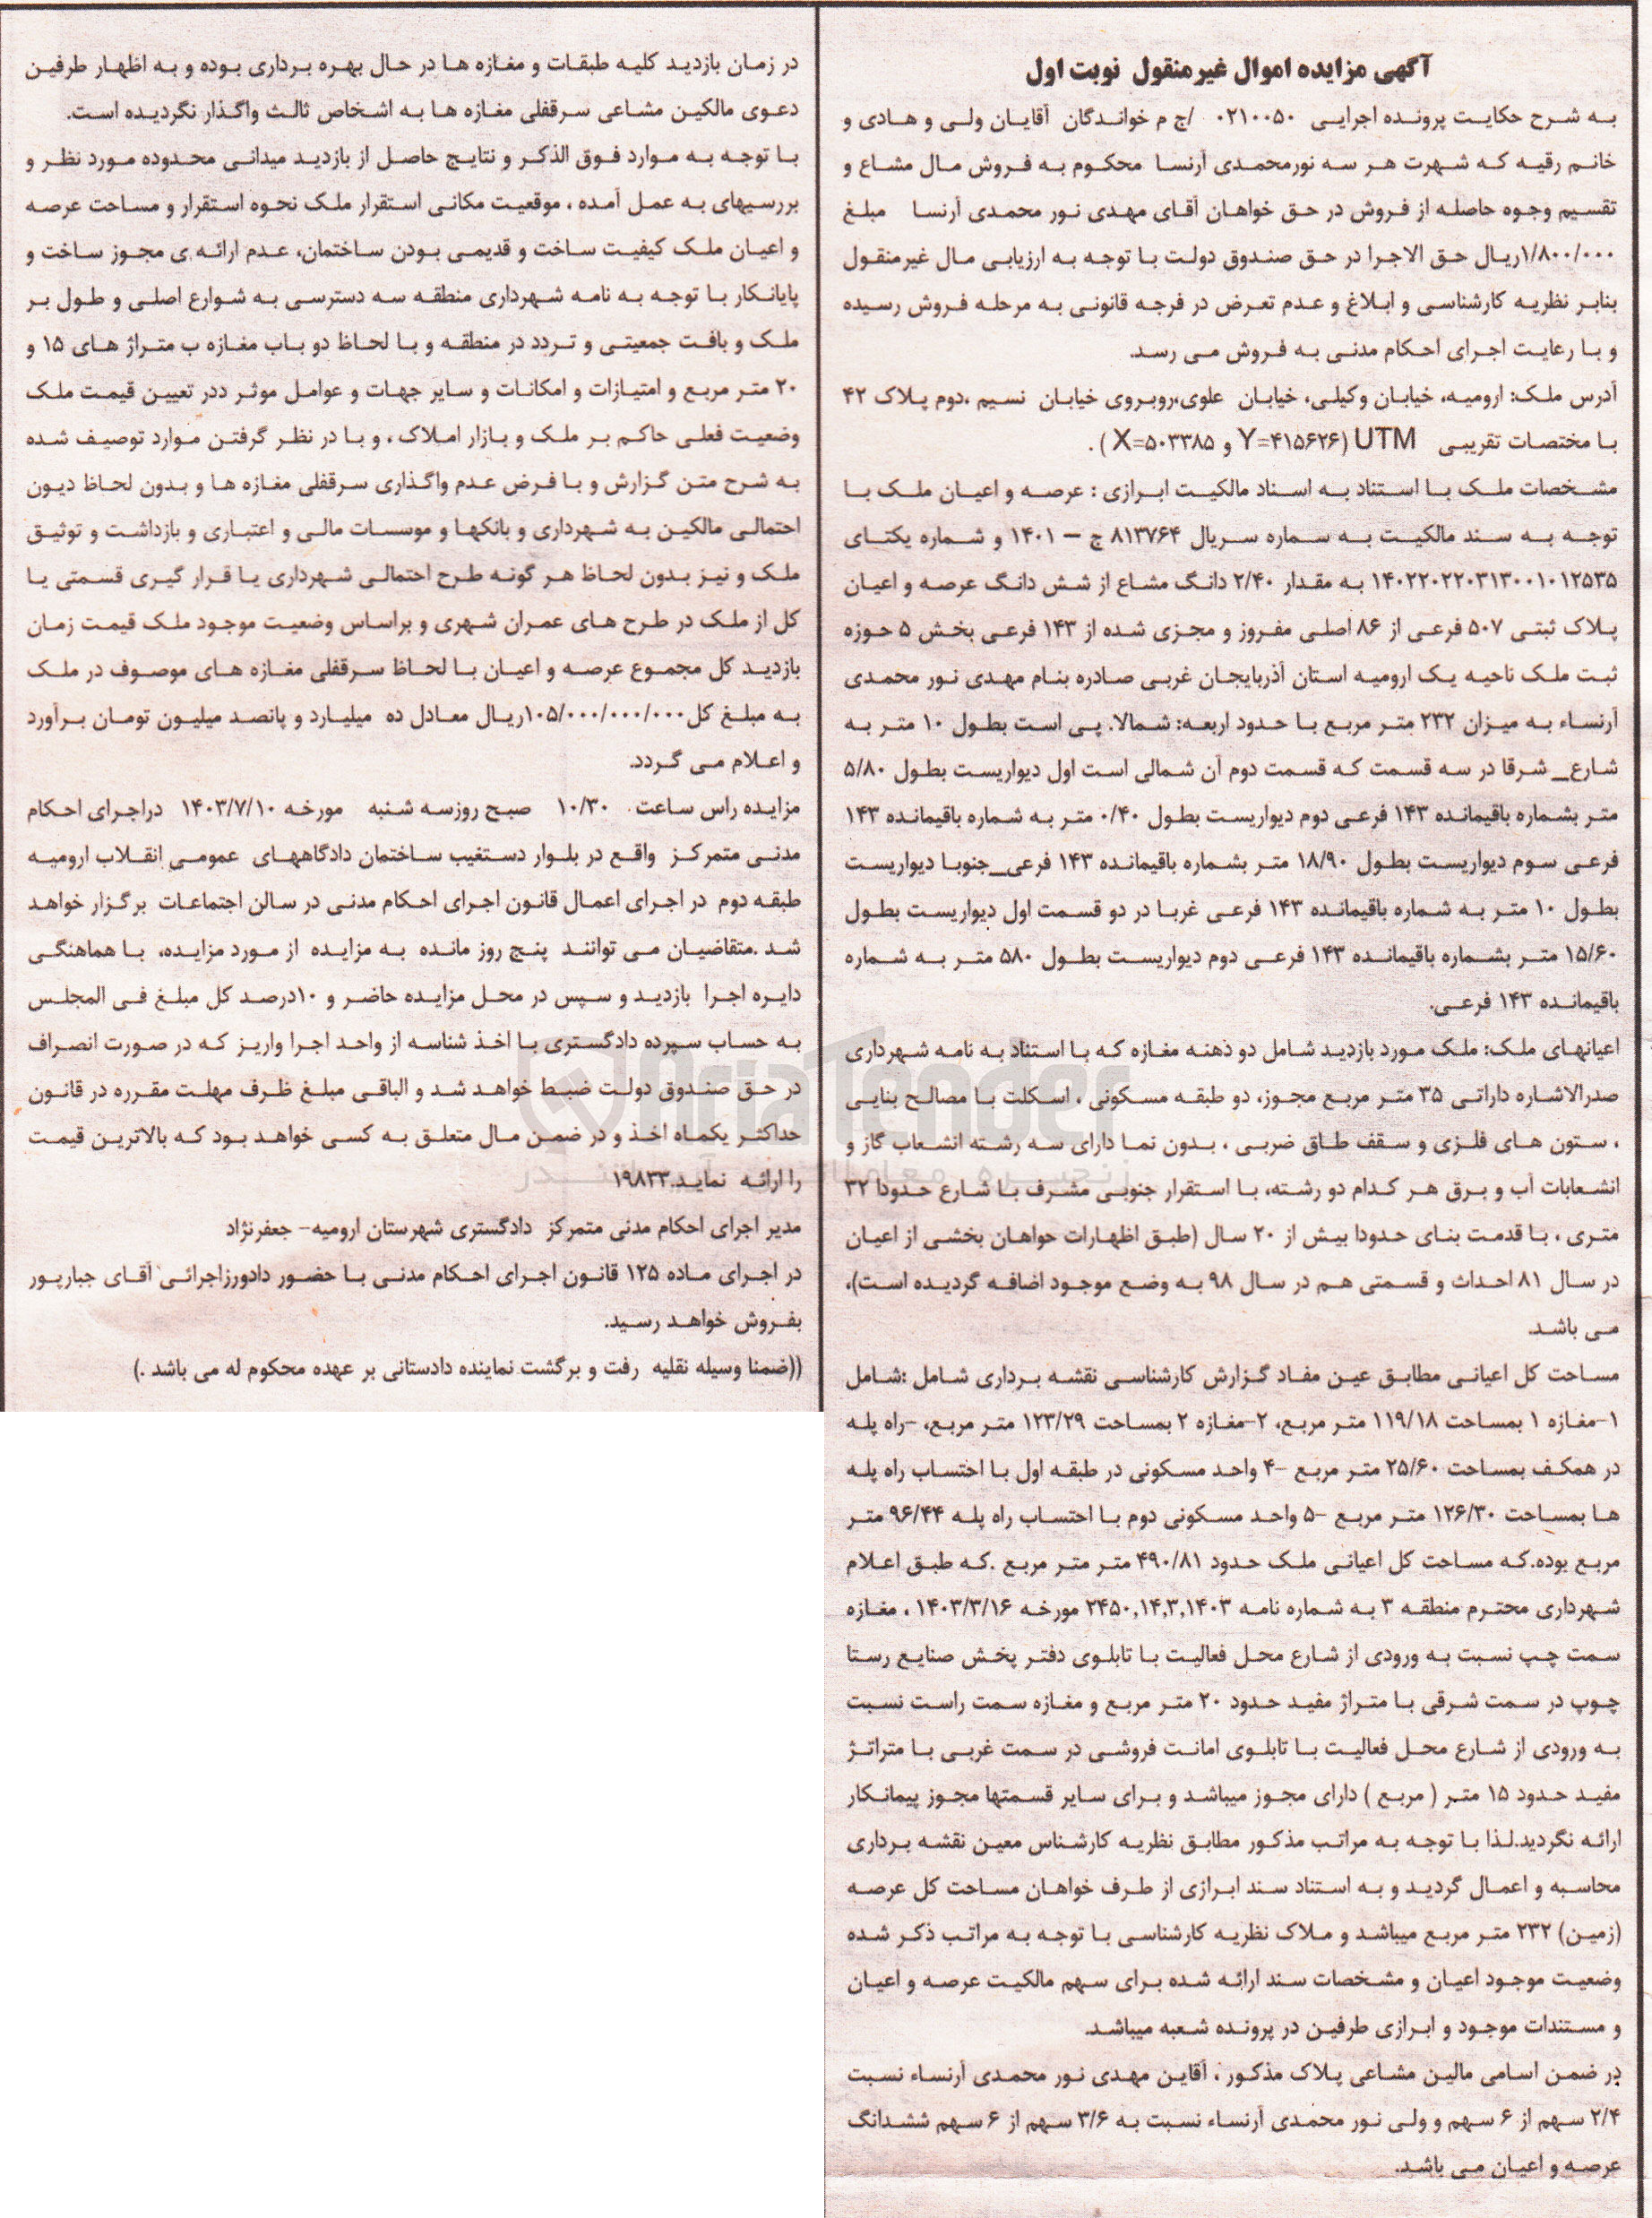 آگهی مزایده اموال غیرمنقول نوبت اول
به شرح حکایت پرونده اجرایی ۰۲۱۰۰۵۰ /ج م خواندگان آقایان ولی و هادی و
خانم رقیه که شهرت هر سه نورمحمدی آرنسا محکوم به فروش مال مشاع و
تقسیم وجوه حاصله از فروش در حق خواهان آقای مهدی نور محمدی آرنسا مبلغ
۱/۸۰۰/۰۰۰ریال حق الاجرا در حق صندوق دولت با توجه به ارزیابی مال غیرمنقول
بنابر نظریه کارشناسی و ابلاغ و عدم تعرض در فرجه قانونی به مرحله فروش رسیده
و با رعایت اجرای احکام مدنی به فروش می رسد.
آدرس ملک: ارومیه، خیابان وکیلی، خیابان علوی،روبروی خیابان نسیم ،دوم پلاک ۴۲
با مختصات تقریبی UTM (Y=۴۱۵۶۲۶ و X=۵۰۳۳۸۵ ) .
مشخصات ملک با استناد به اسناد مالکیت ابرازی : عرصه و اعیان ملک با
توجه به سند مالکیت به سماره سریال ۸۱۳۷۶۴ ج – ۱۴۰۱ و شماره یکتای
۱۴۰۲۲۰۲۲۰۳۱۳۰۰۱۰۱۲۵۳۵ به مقدار ۲/۴۰ دانگ مشاع از شش دانگ عرصه و اعیان
پلاک ثبتی ۵۰۷ فرعی از ۸۶ اصلی مفروز و مجزی شده از ۱۴۳ فرعی بخش ۵ حوزه
ثبت ملک ناحیه یک ارومیه استان آذربایجان غربی صادره بنام مهدی نور محمدی
آرنساء به میزان ۲۳۲ متر مربع با حدود اربعه: شمالا. پی است بطول ۱۰ متر به
شارع_ شرقا در سه قسمت که قسمت دوم آن شمالی است اول دیواریست بطول ۵/۸۰
متر بشماره باقیمانده ۱۴۳ فرعی دوم دیواریست بطول ۰/۴۰ متر به شماره باقیمانده ۱۴۳
فرعی سوم دیواریست بطول ۱۸/۹۰ متر بشماره باقیمانده ۱۴۳ فرعی_جنوبا دیواریست
بطول ۱۰ متر به شماره باقیمانده ۱۴۳ فرعی غربا در دو قسمت اول دیواریست بطول
۱۵/۶۰ متر بشماره باقیمانده ۱۴۳ فرعی دوم دیواریست بطول ۵۸۰ متر به شماره
باقیمانده ۱۴۳ فرعی.
اعیانهای ملک: ملک مورد بازدید شامل دو دهنه مغازه که با استناد به نامه شهرداری
صدرالاشاره داراتی ۳۵ متر مربع مجوز، دو طبقه مسکونی ، اسکلت با مصالح بنایی
، ستون های فلزی و سقف طاق ضربی ، بدون نما دارای سه رشته انشعاب گاز و
انشعابات آب و برق هر کدام دو رشته، با استقرار جنوبی مشرف با شارع حدودا ۳۲
متری ، با قدمت بنای حدودا بیش از ۲۰ سال (طبق اظهارات خواهان بخشی از اعیان
در سال ۸۱ احداث و قسمتی هم در سال ۹۸ به وضع موجود اضافه گردیده است)،
می باشد.
مساحت کل اعیانی مطابق عین مفاد گزارش کارشناسی نقشه برداری شامل :شامل
۱-مغازه ۱ بمساحت ۱۱۹/۱۸ متر مربع، ۲-مغازه ۲ بمساحت ۱۲۳/۲۹ متر مربع، -راه پله
در همکف بمساحت ۲۵/۶۰ متر مربع -۴ واحد مسکونی در طبقه اول با احتساب راه پله
ها بمساحت ۱۲۶/۳۰ متر مربع -۵ واحد مسکونی دوم با احتساب راه پله ۹۶/۴۴ متر
مربع بوده.که مساحت کل اعیانی ملک حدود ۴۹۰/۸۱ متر متر مربع .که طبق اعلام
شهرداری محترم منطقه ۳ به شماره نامه ۲۴۵۰,۱۴,۳,۱۴۰۳ مورخه ۱۴۰۳/۳/۱۶ ، مغازه
سمت چپ نسبت به ورودی از شارع محل فعالیت با تابلوی دفتر پخش صنایع رستا
چوب در سمت شرقی با متراژ مفید حدود ۲۰ متر مربع و مغازه سمت راست نسبت
به ورودی از شارع محل فعالیت با تابلوی امانت فروشی در سمت غربی با متراتژ
مفید حدود ۱۵ متر ( مربع ) دارای مجوز میباشد و برای سایر قسمتها مجوز پیمانکار
ارائه نگردید.لذا با توجه به مراتب مذکور مطابق نظریه کارشناس معین نقشه برداری
محاسبه و اعمال گردید و به استناد سند ابرازی از طرف خواهان مساحت کل عرصه
(زمین) ۲۳۲ متر مربع میباشد و ملاک نظریه کارشناسی با توجه به مراتب ذکر شده
وضعیت موجود اعیان و مشخصات سند ارائه شده برای سهم مالکیت عرصه و اعیان
و مستندات موجود و ابرازی طرفین در پرونده شعبه میباشد.
در ضمن اسامی مالین مشاعی پلاک مذکور ، آقاین مهدی نور محمدی آرنساء نسبت
۲/۴ سهم از ۶ سهم و ولی نور محمدی آرنساء نسبت به ۳/۶ سهم از ۶ سهم ششدانگ
عرصه و اعیان می باشد.
در زمان بازدید کلیه طبقات و مغازه ها در حال بهره برداری بوده و به اظهار طرفین
دعوی مالکین مشاعی سرقفلی مغازه ها به اشخاص ثالث واگذار نگردیده است.
با توجه به موارد فوق الذکر و نتایج حاصل از بازدید میدانی محدوده مورد نظر و
بررسیهای به عمل آمده ، موقعیت مکانی استقرار ملک نحوه استقرار و مساحت عرصه
و اعیان ملک کیفیت ساخت و قدیمی بودن ساختمان، عدم ارائه ی مجوز ساخت و
پایانکار با توجه به نامه شهرداری منطقه سه دسترسی به شوارع اصلی و طول بر
ملک و بافت جمعیتی و تردد در منطقه و با لحاظ دو باب مغازه ب متراژ های ۱۵ و
۲۰ متر مربع و امتیازات و امکانات و سایر جهات و عوامل موثر ددر تعیین قیمت ملک
وضعیت فعلی حاکم بر ملک و بازار املاک ، و با در نظر گرفتن موارد توصیف شده
به شرح متن گزارش و با فرض عدم واگذاری سرقفلی مغازه ها و بدون لحاظ دیون
احتمالی مالکین به شهرداری و بانکها و موسسات مالی و اعتباری و بازداشت و توثیق
ملک و نیز بدون لحاظ هر گونه طرح احتمالی شهرداری یا قرار گیری قسمتی یا
کل از ملک در طرح های عمران شهری و براساس وضعیت موجود ملک قیمت زمان
بازدید کل مجموع عرصه و اعیان با لحاظ سرقفلی مغازه های موصوف در ملک
به مبلغ کل۱۰۵/۰۰۰/۰۰۰/۰۰۰ریال معادل ده میلیارد و پانصد میلیون تومان برآورد
و اعلام می گردد.
مزایده راس ساعت ۱۰/۳۰ صبح روزسه شنبه مورخه ۱۴۰۳/۷/۱۰ دراجرای احکام
مدنی متمرکز واقع در بلوار دستغیب ساختمان دادگاههای عمومی انقلاب ارومیه
طبقه دوم در اجرای اعمال قانون اجرای احکام مدنی در سالن اجتماعات برگزار خواهد
شد .متقاضیان می توانند پنج روز مانده به مزایده از مورد مزایده، با هماهنگی
دایره اجرا بازدید و سپس در محل مزایده حاضر و ۱۰درصد کل مبلغ فی المجلس
به حساب سپرده دادگستری با اخذ شناسه از واحد اجرا واریز که در صورت انصراف
در حق صندوق دولت ضبط خواهد شد و الباقی مبلغ ظرف مهلت مقرره در قانون
حداکثر یکماه اخذ و در ضمن مال متعلق به کسی خواهد بود که بالاترین قیمت
را ارائه نماید.۱۹۸۳۳
مدیر اجرای احکام مدنی متمرکز دادگستری شهرستان ارومیه- جعفرنژاد
در اجرای ماده ۱۲۵ قانون اجرای احکام مدنی با حضور دادورزاجرائی آقای جبارپور
بفروش خواهد رسید.
((ضمنا وسیله نقلیه رفت و برگشت نماینده دادستانی بر عهده محکوم له می باشد .)
AriaTender